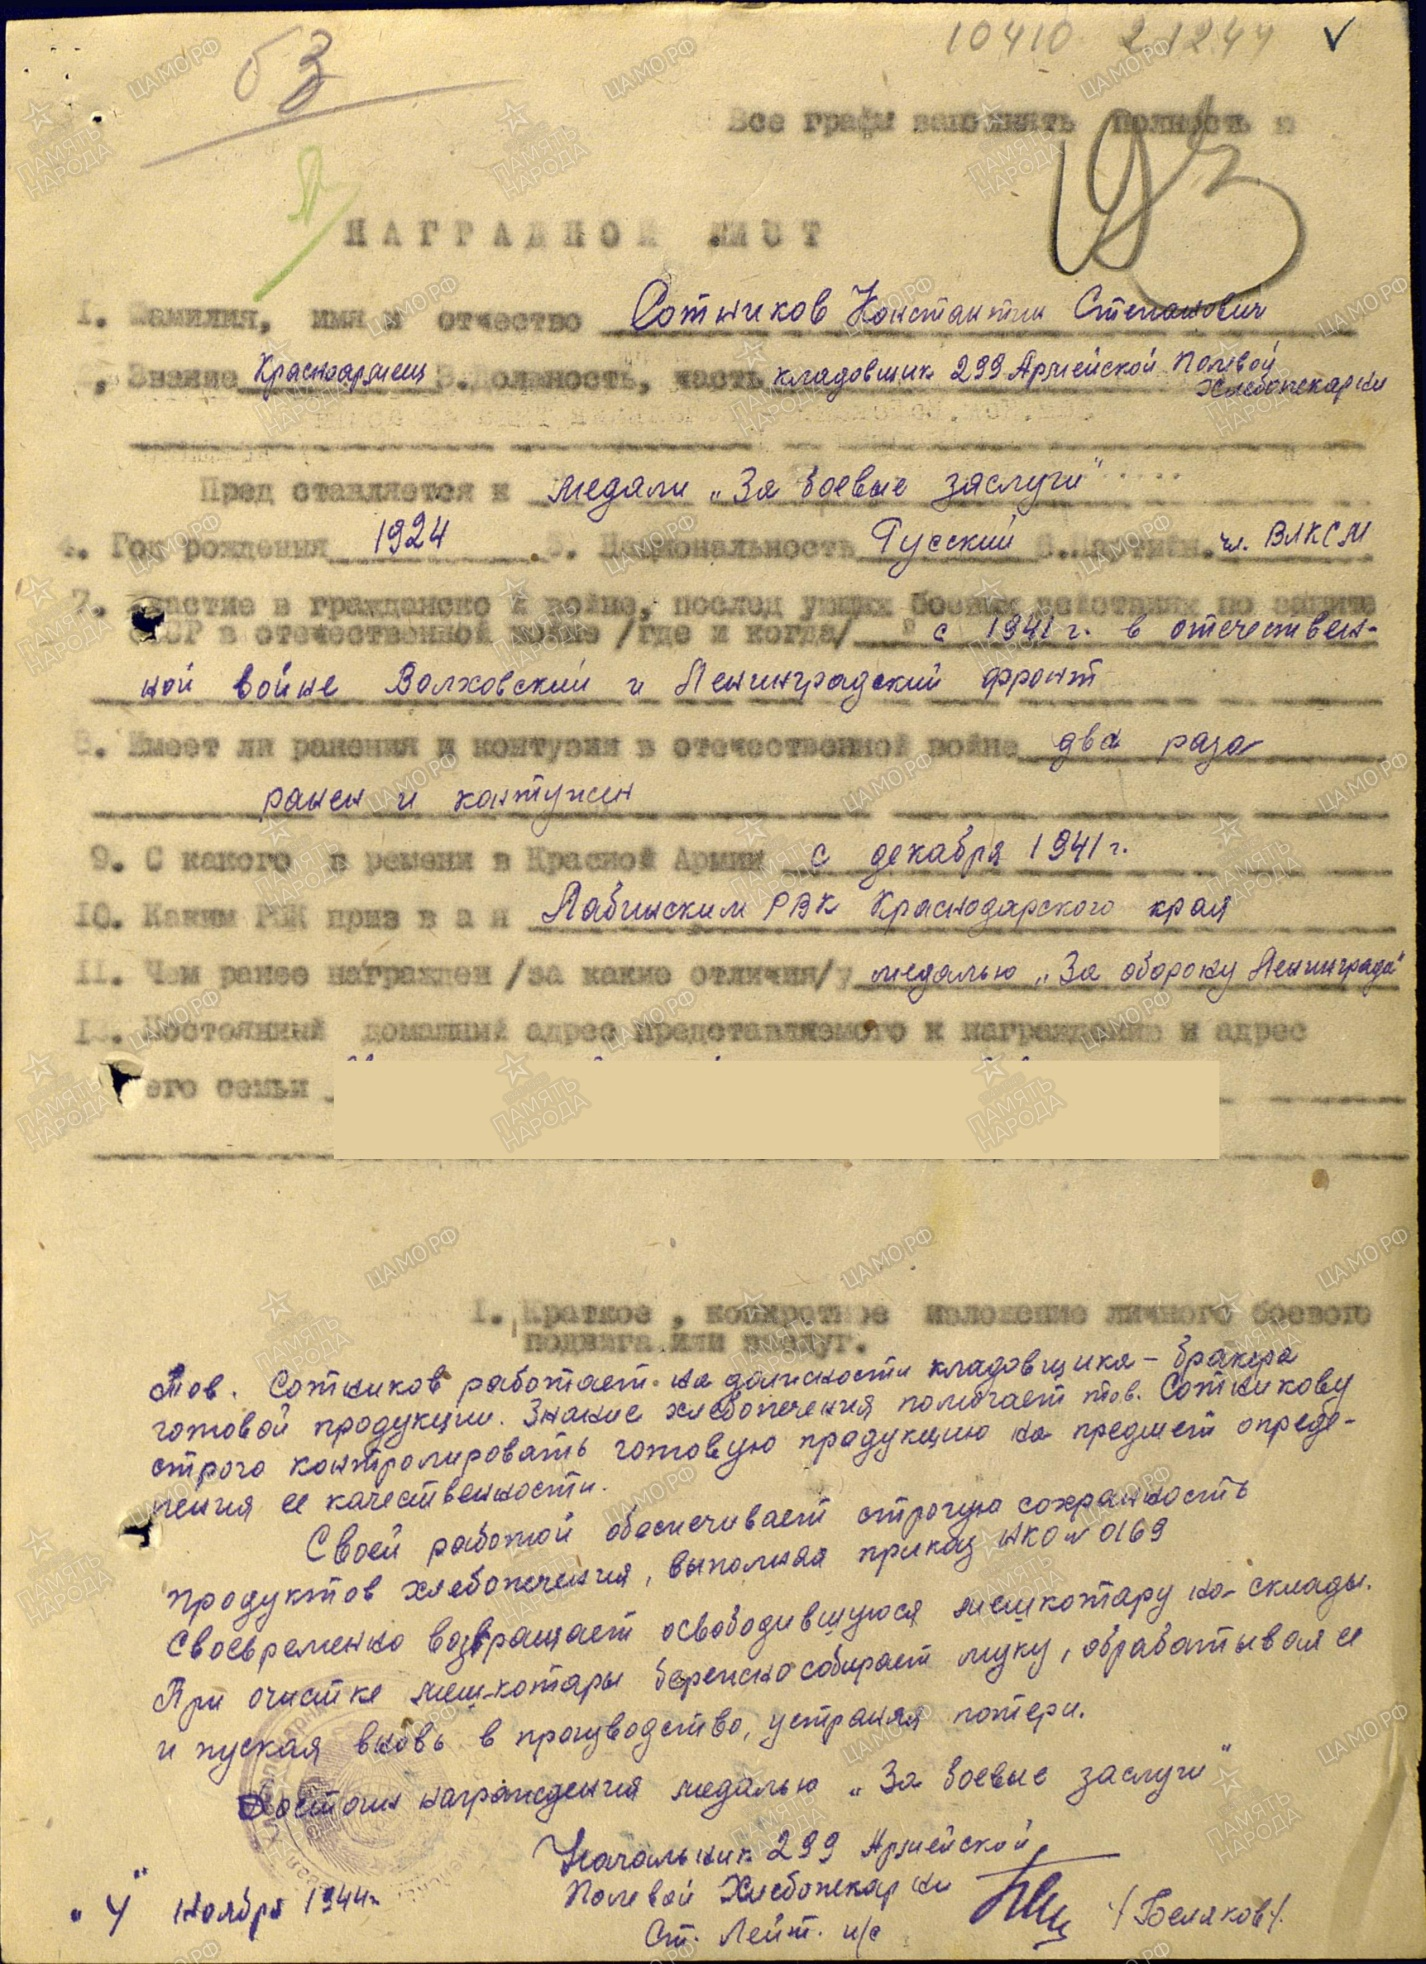 53
10410 21244
Все графы заполнять полность ю
193
НАГРАДНОЙ ЛИСТ
1. Фамилия, имя и отчество Сотников Константин Степанович
, Звание Красноармеец 3. Должность, часть кладовщик 299 Армейской Полевой
Хлебопекарни
Пред ставляется к медали „За боевые заслуги"
4. Год рождения 1924 5. Национальность Русский 6. Партийн. чл. ВЛКСМ
7. Участие в гражданско й войне, послед ующих боевых действиях по защите
СССР в отечественной войне /где и когда/ с 1941 г. в отечествен-
ной войне Волховский и Ленинградский фронт
8. Имеет ли ранения и контузии в отечественной войне два раза
ранен и контужен
9. С какого в ремени в Красной Армии с декабря 1941 г.
10. Каким РВК приз в а н Лабинским РВК Краснодарского края
11. Чем ранее награжден /за какие отличия/ медалью „За оборону Ленинграда"
12. Постоянный домашний адрес представляемого к награждению и адрес
его семьи
1. Краткое , конкретное изложение личного боевого
подвига или заслуг.
Тов. Сотников работает на должности кладовщика - бракера
готовой продукции. Знание хлебопечения помогает тов. Сотникову
строго контролировать готовую продукцию на предмет опреде-
ления ее качественности.
Своей работой обеспечивает строгую сохранность
продуктов хлебопечения, выполняя приказ НКО № 0169
Своевременно возвращает освободившуюся мешкотару на склады.
При очистке меш-котары бережно собирает муку, обрабатывая ее
и пуская вновь в производство, устраняя потери.
Достоин награждения медалью „За боевые заслуги"
Начальник 299 Армейской
Полевой Хлебопекарни
Ст. Лейт. и/с /Беляков/.
„4" ноября 1944 г.